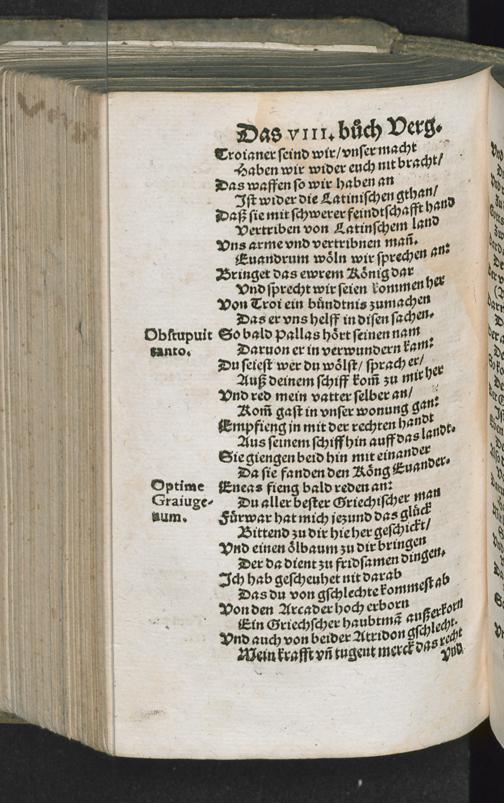 Das VIII. bůch Verg.
Troianer seind wir/vnser macht
Haben wir wider euch nit bracht/
Das waffen so wir haben an
Ist wider die Latinischen gthan/
Daß sie mit schwerer feindtschafft hand
Vertriben von Latinschem land
Vns arme vnd vertribnen mañ.
Euandrum wöln wir sprechen an:
Bringet das ewrem König dar
Vnd sprecht wir seien kommen her
Von Troi ein bündtnis zumachen
Das er vns helff in disen sachen.
Obstupuit
tanto.
So bald Pallas hört seinen nam
Daruon er in verwundern kam:
Du seiest wer du wölst/ sprach er/
Auß deinem schiff kom̃ zu mir her
Vnd red mein vatter selber an/
Kom̃ gast in vnser wonung gan:
Empfieng in mit der rechten handt
Aus seinem schiff hin auff das landt.
Sie giengen beid hin mit einander
Da sie fanden den Köng Euander.
Optime
Graiuge-
num.
Eneas fieng bald reden an:
Du aller bester Griechischer man
Fürwar hat mich jezund das glück
Bittend zu dir hie her geschickt/
Vnd einen ölbaum zu dir bringen
Der da dient zu fridsamen dingen.
Ich hab gescheuhet nit darab
Das du von gschlechte kommest ab
Von den Arcader hoch erborn
Ein Griechscher haubtmã außerkorn
Vnd auch von beider Atridon gschlecht.
Mein krafft vñ tugent merck das recht
Vnd